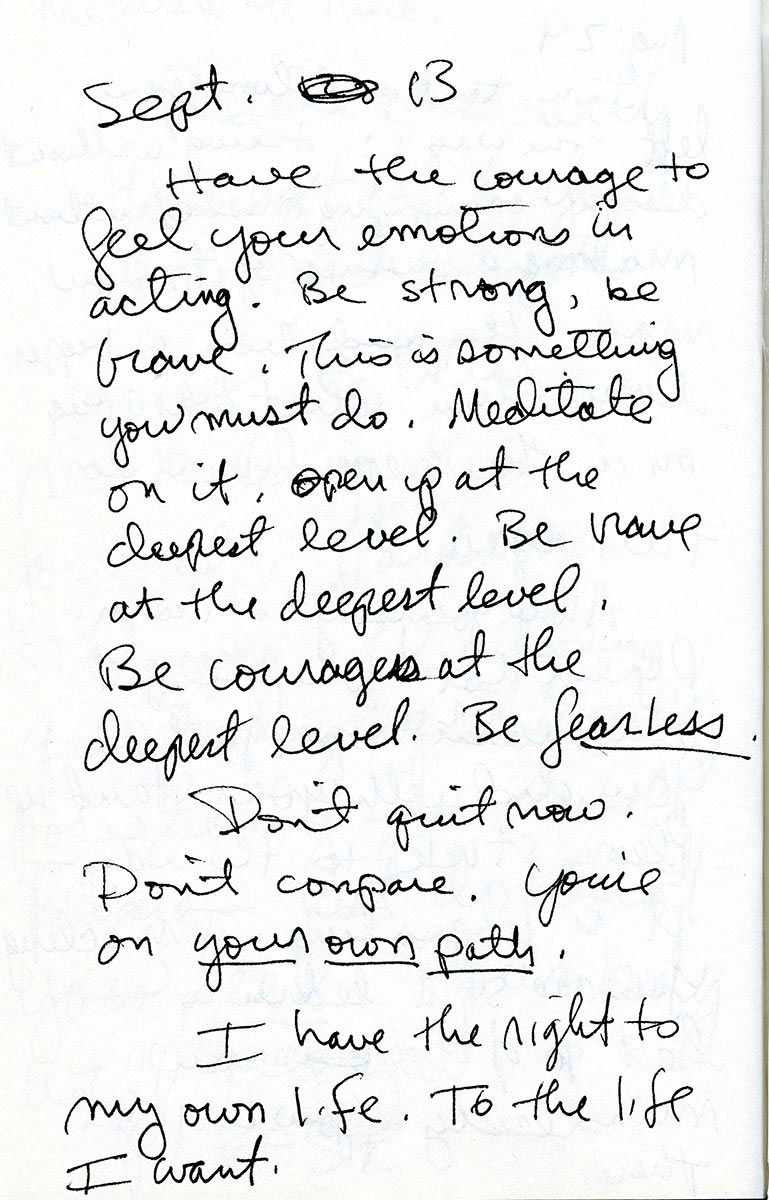 Sept. 13
Have the courage to
feel your emotions in
acting. Be strong, be
brave. This is something
you must do. Meditate
on it, open up at the
deepest level. Be brave
at the deepest level.
Be courages at the
deepest level. Be fearless.
Don't quit now.
Don't compare. You're
on your own path.
I have the right to
my own life. To the life
I want.